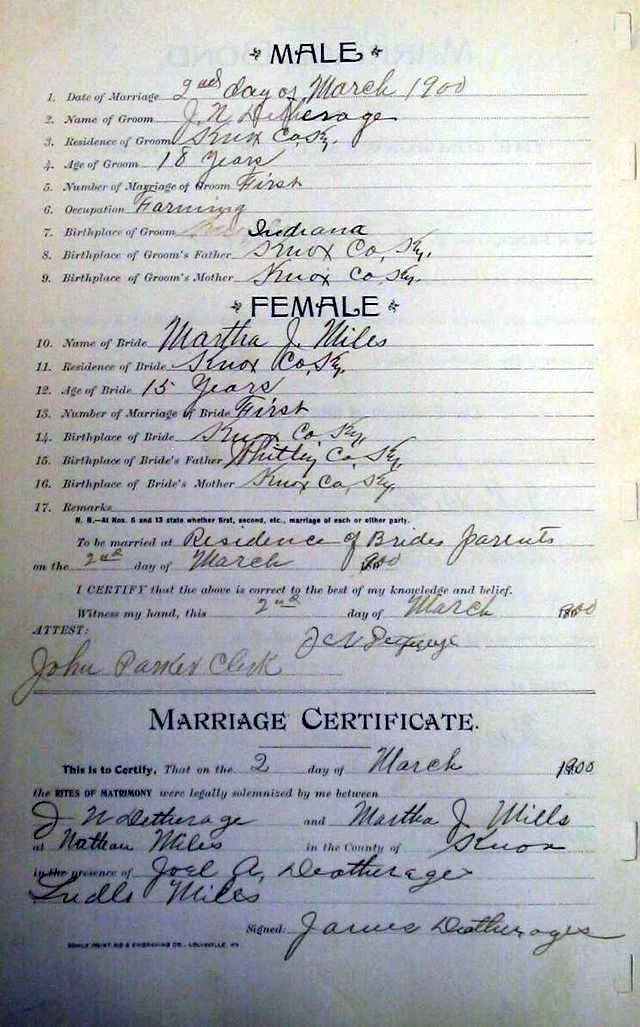 MALE
1. Date of Marriage 2nd day of March 1900
2. Name of Groom J. N. Detherage
3. Residence of Groom Knox Co, Ky.
4. Age of Groom 18 Years
5. Number of Marriage of Groom First
6. Occupation Farming
7. Birthplace of Groom Indiana
8. Birthplace of Groom's Father Knox Co, Ky.
9. Birthplace of Groom's Mother Knox Co, Ky.
FEMALE
10. Name of Bride Martha J. Miles
11. Residence of Bride Knox Co, Ky.
12. Age of Bride 15 Years
13. Number of Marriage of Bride First
14. Birthplace of Bride Knox Co, Ky,
15. Birthplace of Bride's Father Whitley Co, Ky,
16. Birthplace of Bride's Mother Knox Co, Ky.
17. Remarks
N. B.—At Nos. 5 and 13 state whether first, second, etc., marriage of each or either party.
To be married at Residence of Brides parents
on the 2nd day of March 1900
I CERTIFY that the above is correct to the best of my knowledge and belief.
Witness my hand, this 2nd day of March 1900
ATTEST: J N
John Parker Clerk
MARRIAGE CERTIFICATE.
This is to Certify, That on the 2 day of March 1900
the RITES OF MATRIMONY were legally solemnized by me between
J N Detherage and Martha J. Mills
at Nathan Miles in the County of Knox
in the presence of Joel A, Deatherage
Miles
Signed: James Deatherages
PRINTING & ENGRAVING CO., LOUISVILLE, KY.